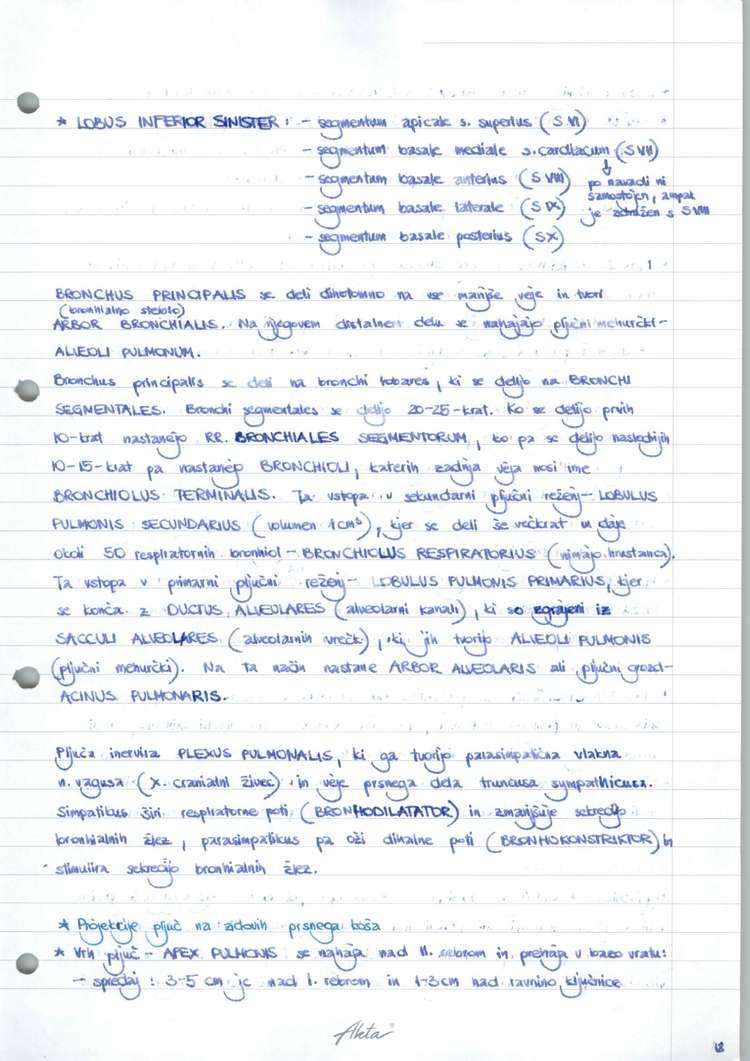 * LOBUS INFERIOR SINISTER: - segmentum apicale s. superius (S VI)
- segmentum basale mediale s. cardiacum (S VII)
↓
- segmentum basale anterius (S VIII) po navadi ni
samostojen, ampak
- segmentum basale laterale (S IX) je združen s SVIII
- segmentum basale posterius (SX)
BRONCHUS PRINCIPALIS se deli dihotomno na vse manjše veje in tvori
(bronhialno steblo)
ARBOR BRONCHIALIS. Na njegovem distalnem delu se nahajajo pljučni mehurčki-
ALVEOLI PULMONUM.
Bronchus principalis se deli na bronchi lobares, ki se delijo na BRONCHI
SEGMENTALES. Bronchi segmentales se delijo 20-25-krat. Ko se delijo prvih
10-krat nastanejo RR. BRONCHIALES SEGMENTORUM, ko pa se delijo naslednjih
10-15-krat pa nastanejo BRONCHIOLI, katerih zadnja veja nosi ime
BRONCHIOLUS TERMINALIS. Ta vstopa v sekundarni pljučni reženj - LOBULUS
PULMONIS SECUNDARIUS (volumen 1cm³), kjer se deli še večkrat in daje
okoli 50 respiratornih bronhiol - BRONCHIOLUS RESPIRATORIUS (nimajo hrustanca).
Ta vstopa v primarni pljučni reženj - LOBULUS PULMONIS PRIMARIUS, kjer
se konča z DUCTUS ALVEOLARES (alveolarni kanali), ki so zgrajeni iz
SACCULI ALVEOLARES (alveolarnih vrečk), ki jih tvorijo ALVEOLI PULMONIS
(pljučni mehurčki). Na ta način nastane ARBOR ALVEOLARIS ali pljučni grozd-
ACINUS PULMONARIS.
Pljuča inervira PLEXUS PULMONALIS, ki ga tvorijo parasimpatična vlakna
n. vagusa (X. cranialni živec) in veje prsnega dela truncusa sympathicusa.
Simpatikus širi respiratorne poti (BRONHODILATATOR) in zmanjšuje sekrecijo
bronhialnih žlez, parasimpatikus pa oži dihalne poti (BRONHOKONSTRIKTOR) in
stimulira sekrecijo bronhialnih žlez.
* Projekcije pljuč na zidovih prsnega koša
* Vrh pljuč - APEX PULMONIS se nahaja nad II. rebrom in prehaja v bazo vratu:
- spredaj: 3-5 cm je nad I. rebrom in 1-3cm nad ravnino ključnice
Akta